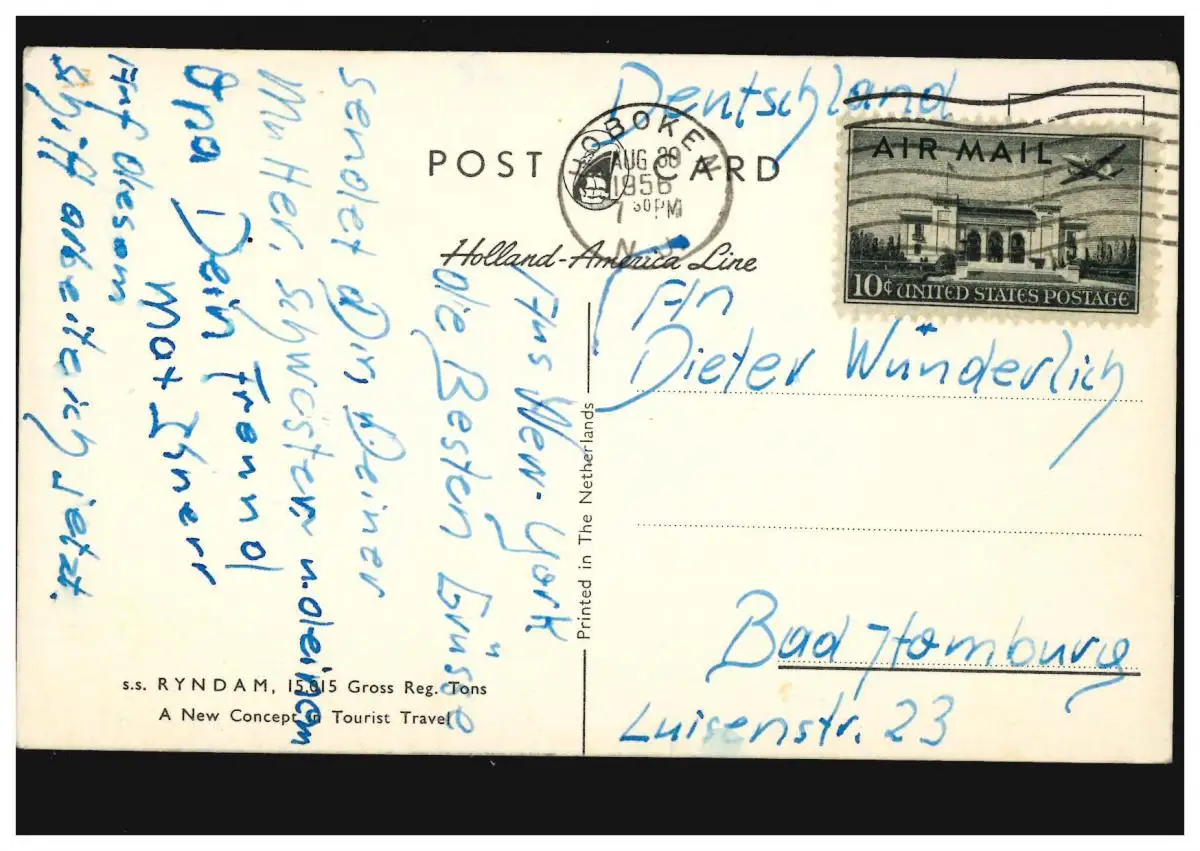 POST CARD
Holland-America Line
HOBOKEN
AUG 
1956
7 30 PM
N.J.
AIR MAIL
10¢ UNITED STATES POSTAGE
Deutschland
An
Dieter Wünderlich
Bad Homburg
Luisenstr. 23
Printed in The Netherlands
Aus New-York
die Besten Grüsse
sendet Dir, Deiner
Mutter, Schwester, u. deinem
Opa Dein Freund
Auf diesem
Schiff arbeite ich jetzt.
s.s. RYNDAM, 15,015 Gross Reg. Tons
A New Concept in Tourist Travel